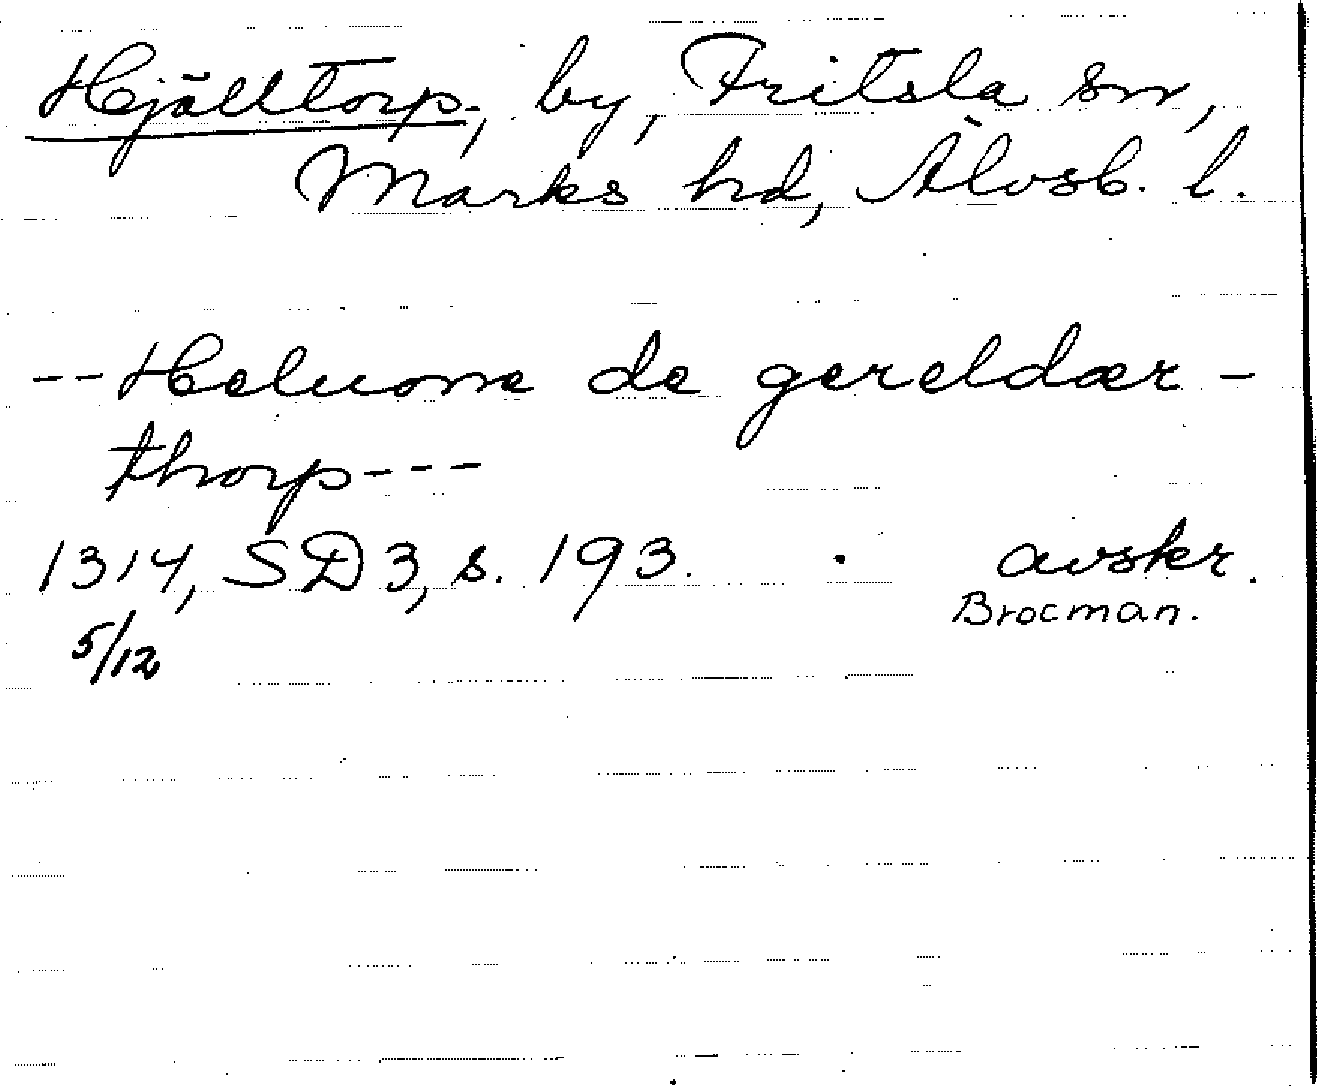 Hjälltorp, by, Fritsla sn,
Marks hd, Älvsb. l.
-- Heluone de gereldær -
thorp ---
1314, SD 3, s. 193. avskr.
5/12 Brocman.